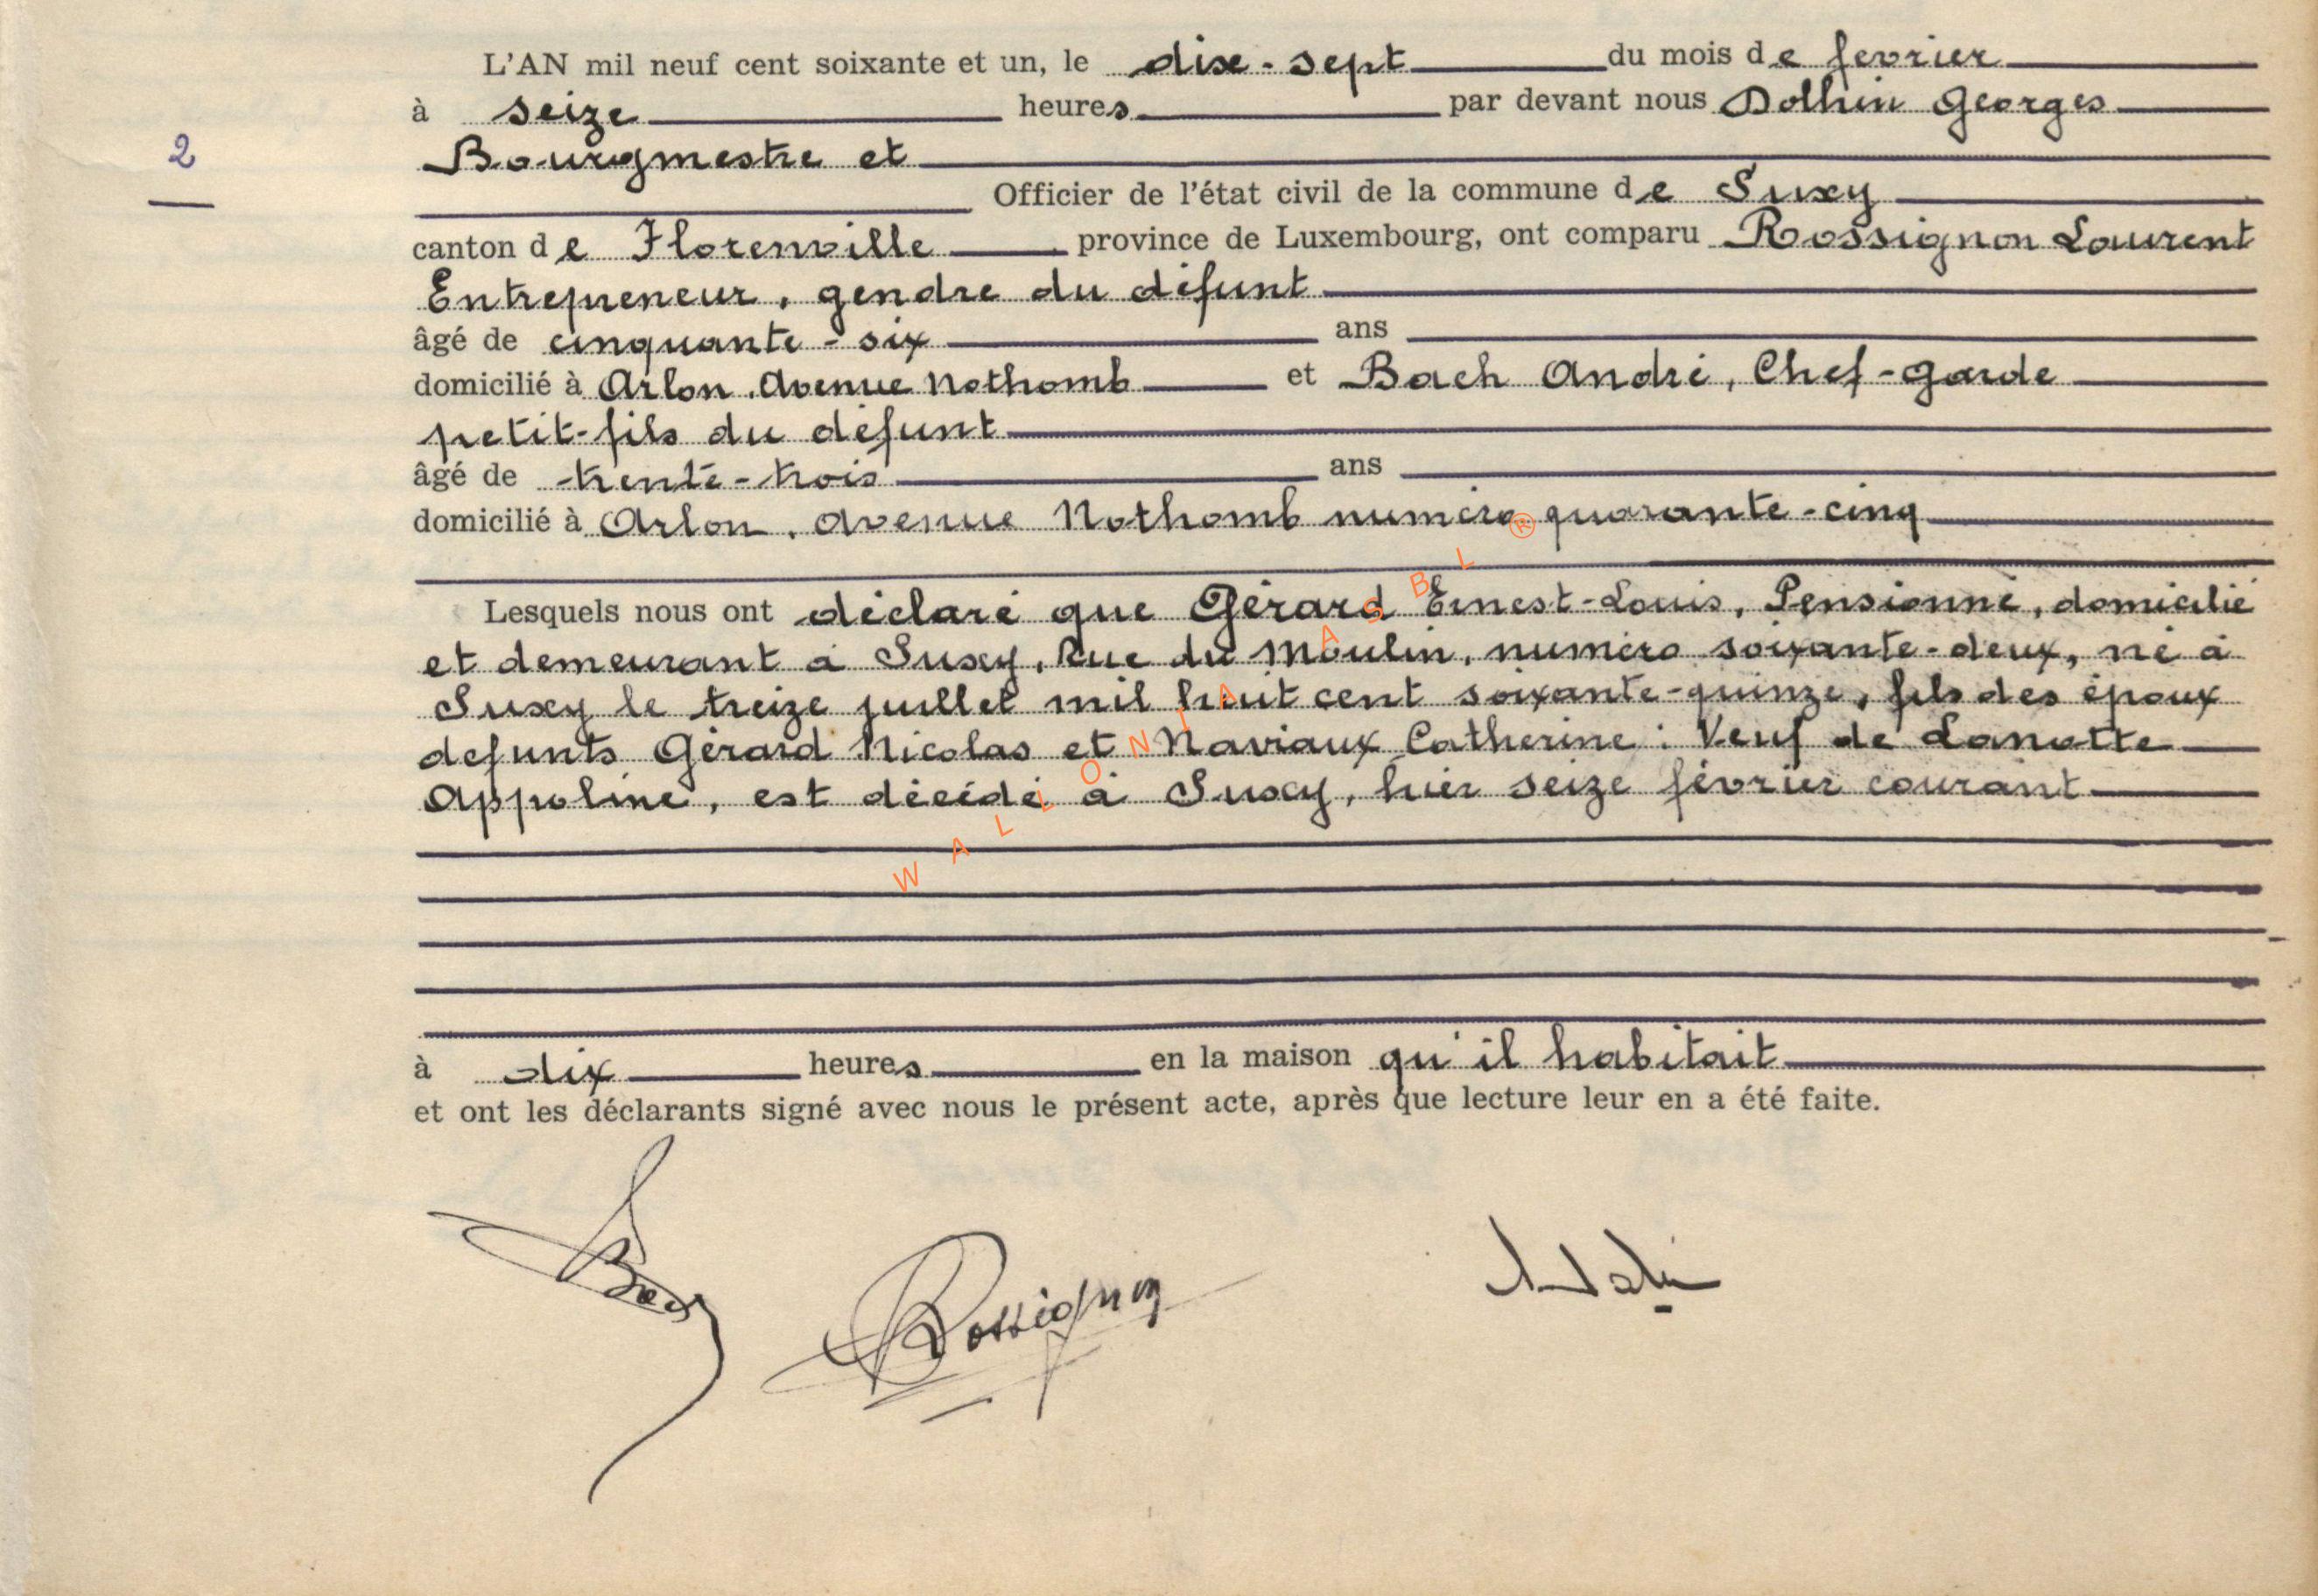 L'AN mil neuf cent soixante et un, le dix-sept du mois de fevrier
à seize heures par devant nous Dolhin Georges
2
Bourgmestre et
Officier de l'état civil de la commune de Suxy
canton de Florenville province de Luxembourg, ont comparu Rossignon Laurent
Entrepreneur, gendre du défunt
âgé de cinquante-six ans
domicilié à Arlon, Avenue Nothomb et Bach André, Chef-garde
petit-fils du défunt
âgé de trente-trois ans
domicilié à Arlon, avenue Nothomb numéro quarante-cinq
Lesquels nous ont déclaré que Gérard Ernest-Louis, Pensionné, domicilié
et demeurant à Suxy, Rue du Moulin, numéro soixante-deux, né à
Suxy le treize juillet mil huit cent soixante-quinze, fils des époux
defunts Gérard Nicolas et Naviaux Catherine : Veuf de Lanotte
Appoline, est décédé à Suxy, hier seize février courant
WALLONIA ASBL ®
à dix heures en la maison qu'il habitait
et ont les déclarants signé avec nous le présent acte, après que lecture leur en a été faite.
Rossignon